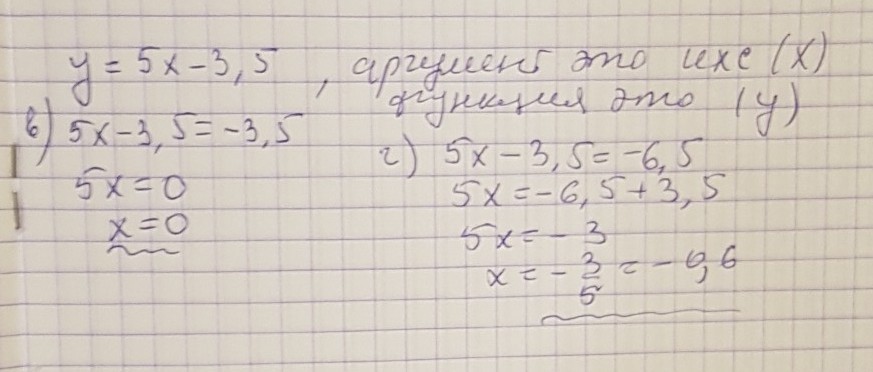 y = 5x - 3,5 , аргумент это икс (x)
функция это (y)
в) 5x - 3,5 = -3,5
5x = 0
x = 0
г) 5x - 3,5 = -6,5
5x = -6,5 + 3,5
5x = - 3
x = - 3/5 = - 0,6